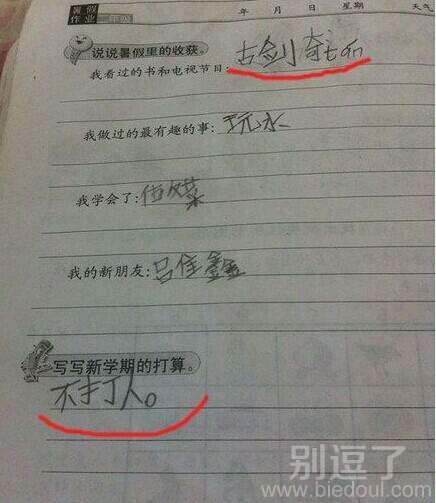 暑假
作业 二年级 年 月 日 星期 天气
说说暑假里的收获。
我看过的书和电视节目: 古剑奇
我做过的最有趣的事: 玩水
我学会了: 做菜
我的新朋友: 吕佳鑫
写写新学期的打算。
不打人。
别逗了
www.biedoul.com